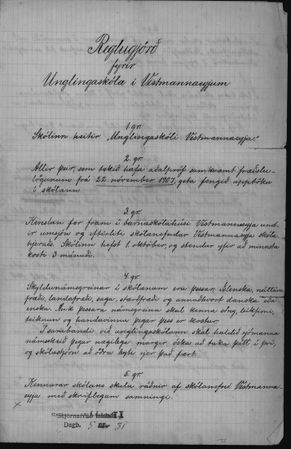 Reglugjörð
fyrir
Unglingaskóla í Vestmannaeyjum
1 gr.
Skólinn heitir „Unglingaskóli Vestmannaeyja“.
2. gr.
Allir þeir, sem tekið hafa aðalpróf samkvæmt fræðslu-
lögunum frá 22 nóvember 1907, geta fengið upptöku
í skólann
3. gr.
Kenslan fer fram í barnaskólahúsi Vestmannaeyja und-
ir umsjón og eftirliti skólanefndar Vestmannaeyja skóla-
hjeraðs. Skólinn hefst 1 október, og stendur yfir að minnsta
kosti 3 mánuði.
4. gr.
Skyldunámsgreinar í skólanum eru þessar: íslenska, náttúru-
fræði, landafræði, saga, stærðfræði og annaðhvort danska eða
enska. Auk þessara námsgreina skal kenna söng, leikfimi,
teiknun og handavinnu þegar þess er kostur
Í sambandi við unglingaskólann skal haldið sjómanna
námsskeið þegar nægilega margir óska að taka þátt í því,
og skólastjórn að öðru leyti sjer það fært.
5 gr.
Kennarar skólans skulu ráðnir af skólanefnd Vestmanna-
eyja með skriflegum samningi.
Dagb. 5 31